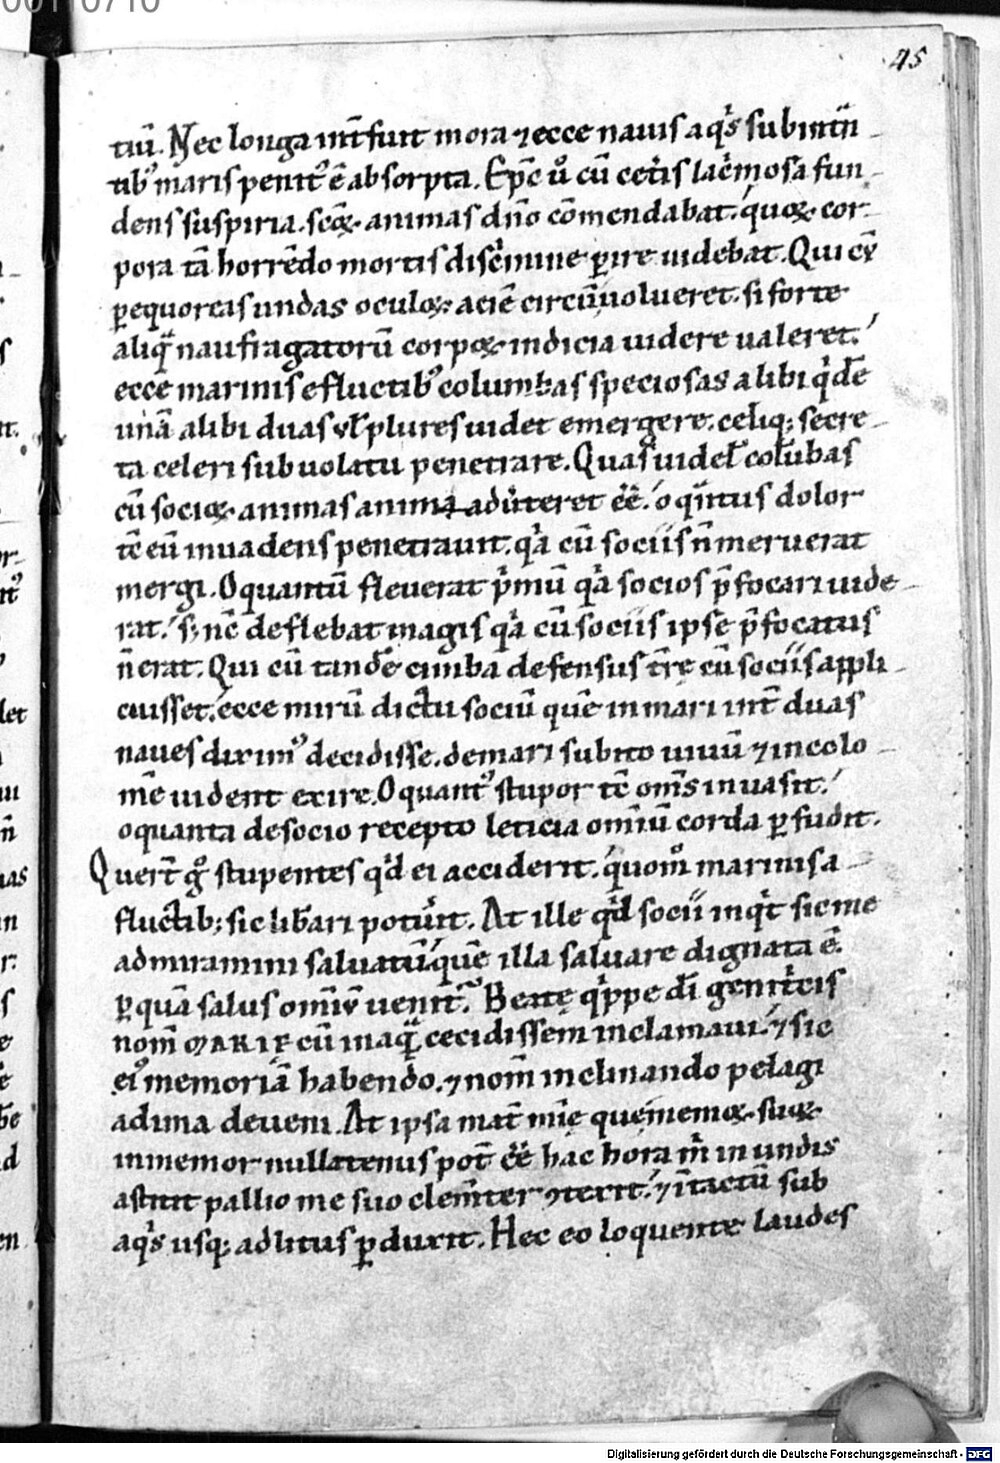 45
tiū. Nec longa int̄ fuit mora ⁊ ecce nauis aq̇s subintrā
tibꝰ maris penitꝰ ē absorpta. Ep̄c ů cū cet̄is lac̄mosa fun
dens suspiria. scōꝝ animas dn̄o cōmendabat. quoꝝ cor
pora tā horrēdo mortis disc̄mine ꝑire uidebat. Qui cū
ꝑ equoreas undas oculoꝝ aciē circūuolueret. si forte
aliq̄ naufragatorū corpoꝝ indicia uidere ualeret.
ecce marinis e fluctibꝰ columbas speciosas alibi q̇dē
unā alibi duas ut̄ plures uidet emergere. celiq; secre
ta celeri subuolatu penetrare. Quas uideł colūbas
cū socioꝝ animas aduerteret ēē. o q̄ntus dolor
tc̄ eū inuadens penetrauit. q̇a cū sociis n̄ meruerat
mergi. O quantū fleuerat p̄mū q̇a socios p̄focari uide
rat. s; nc̄ deflebat magis q̇a cū sociis ipse p̄focatus
n̄ erat. Qui cū tandē cimba defensus t̄rę cū sociis appli
cuisset. ecce mirū dictu sociū quē in mari int̄ duas
naues diximꝰ decidisse. de mari subito uiuū ⁊ incolo
mē uident exire. O quantꝰ stupor tc̄ om̄s inuasit.
o quanta de socio recepto leticia omiū corda ꝑfudit.
Quert̄ g̊ stupentes q̇d ei acciderit. quom̊ marinis a
fluctib; sic lib̄ari potūit. At ille q̇d socii inq̇t sic me
admiramini saluatū. quē illa saluare dignata ē.
ꝑ quā salus omiū uenit. Beatę q̇ppe dī geniṫcis
nom̄ MARIĘ cū in aq̄ cecidissem inclamaui. ⁊ sic
eiꝰ memoriā habendo. ⁊ nom̄ inclinando pelagi
ad ima deueni. At ipsa mat̄ mīe que memoꝝ suoꝝ
inmemor nullatenus pot̄ ēē hac hora m̊ in undis
astitit pallio me suo clem̄ter ꝯterit. ⁊ ītactū sub
aq̇s usq; ad litus ꝑduxit. Hec eo loquente laudes
Digitalisierung gefördert durch die Deutsche Forschungsgemeinschaft - DFG